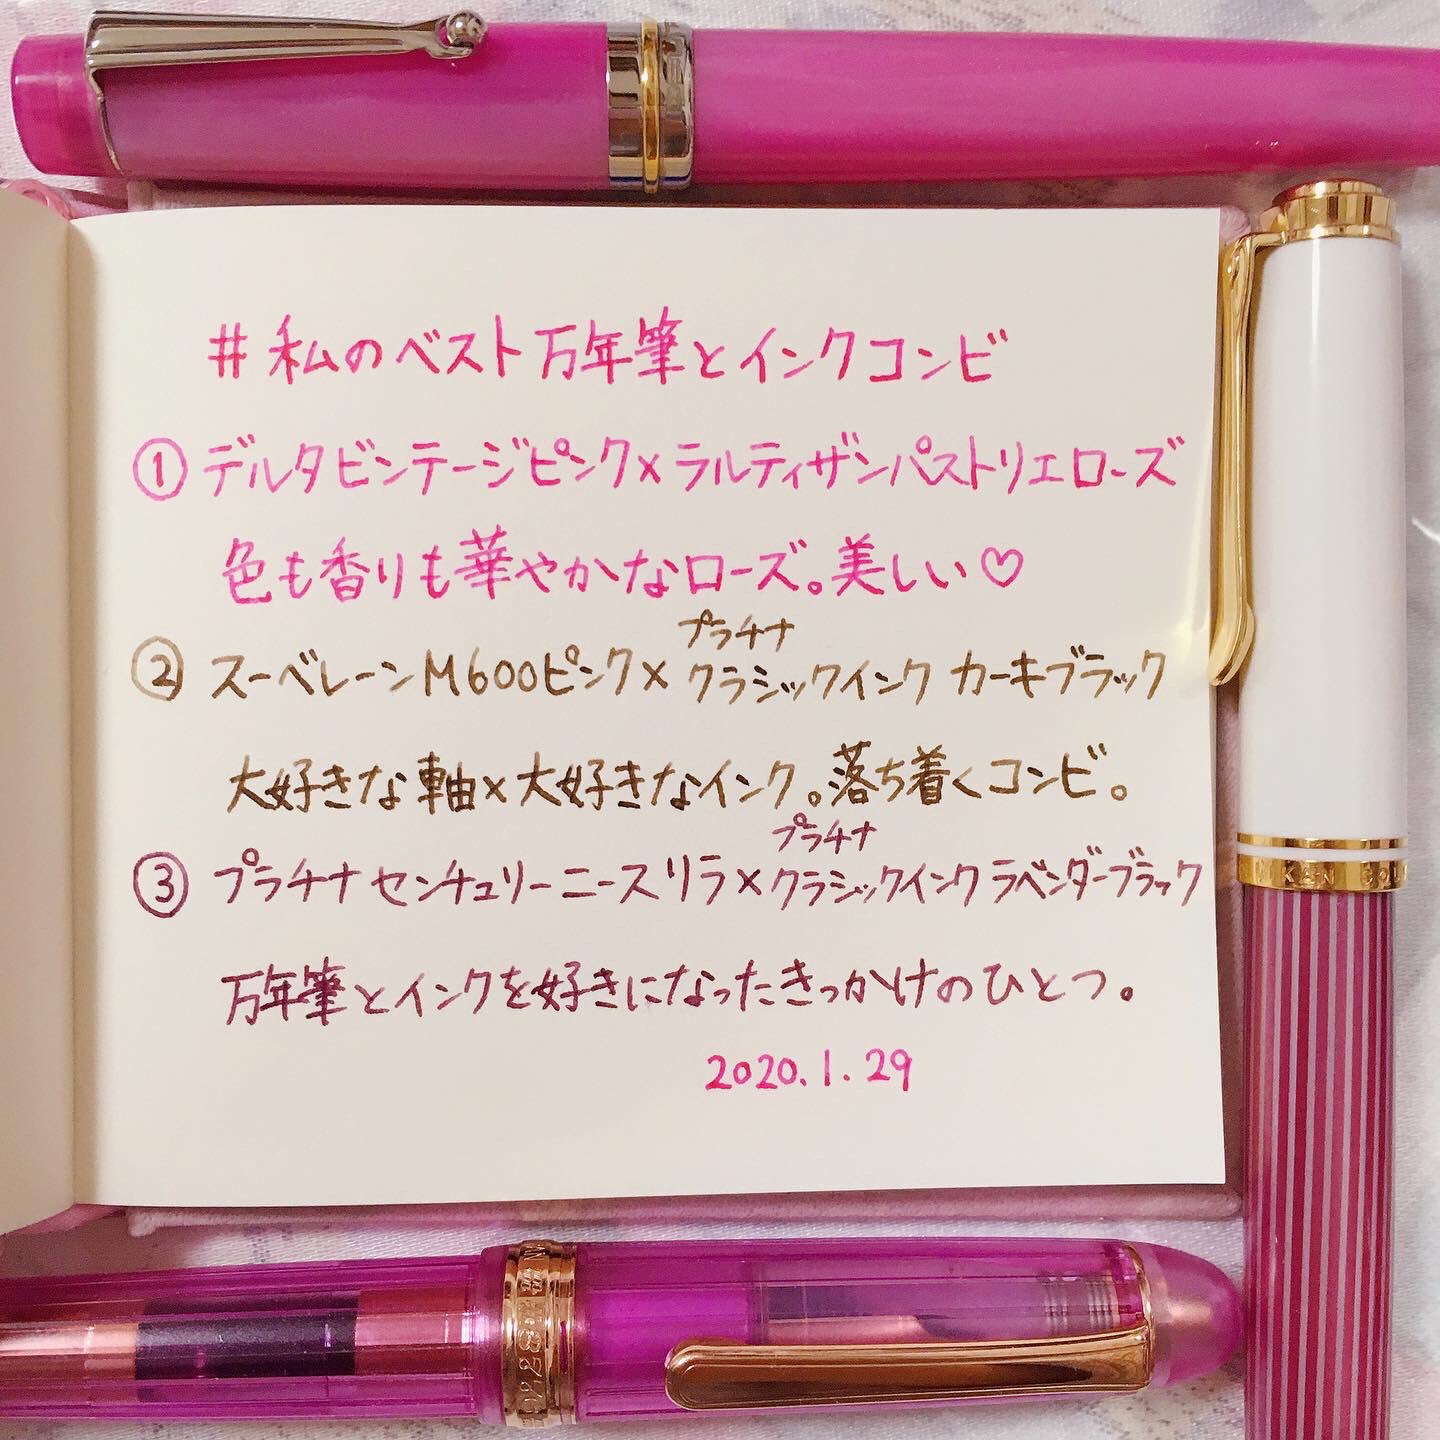 #私のベスト万年筆とインクコンビ
①デルタビンテージピンク×ラルティザンパストリエローズ
色も香りも華やかなローズ。美しい♡
プラチナ
②スーベレーンM600ピンク×クラシックインク カーキブラック
大好きな軸×大好きなインク。落ち着くコンビ。
プラチナ
③プラチナセンチュリーニースリラ×クラシックインクラベンダーブラック
万年筆とインクを好きになったきっかけのひとつ。
2020.1.29
#3776